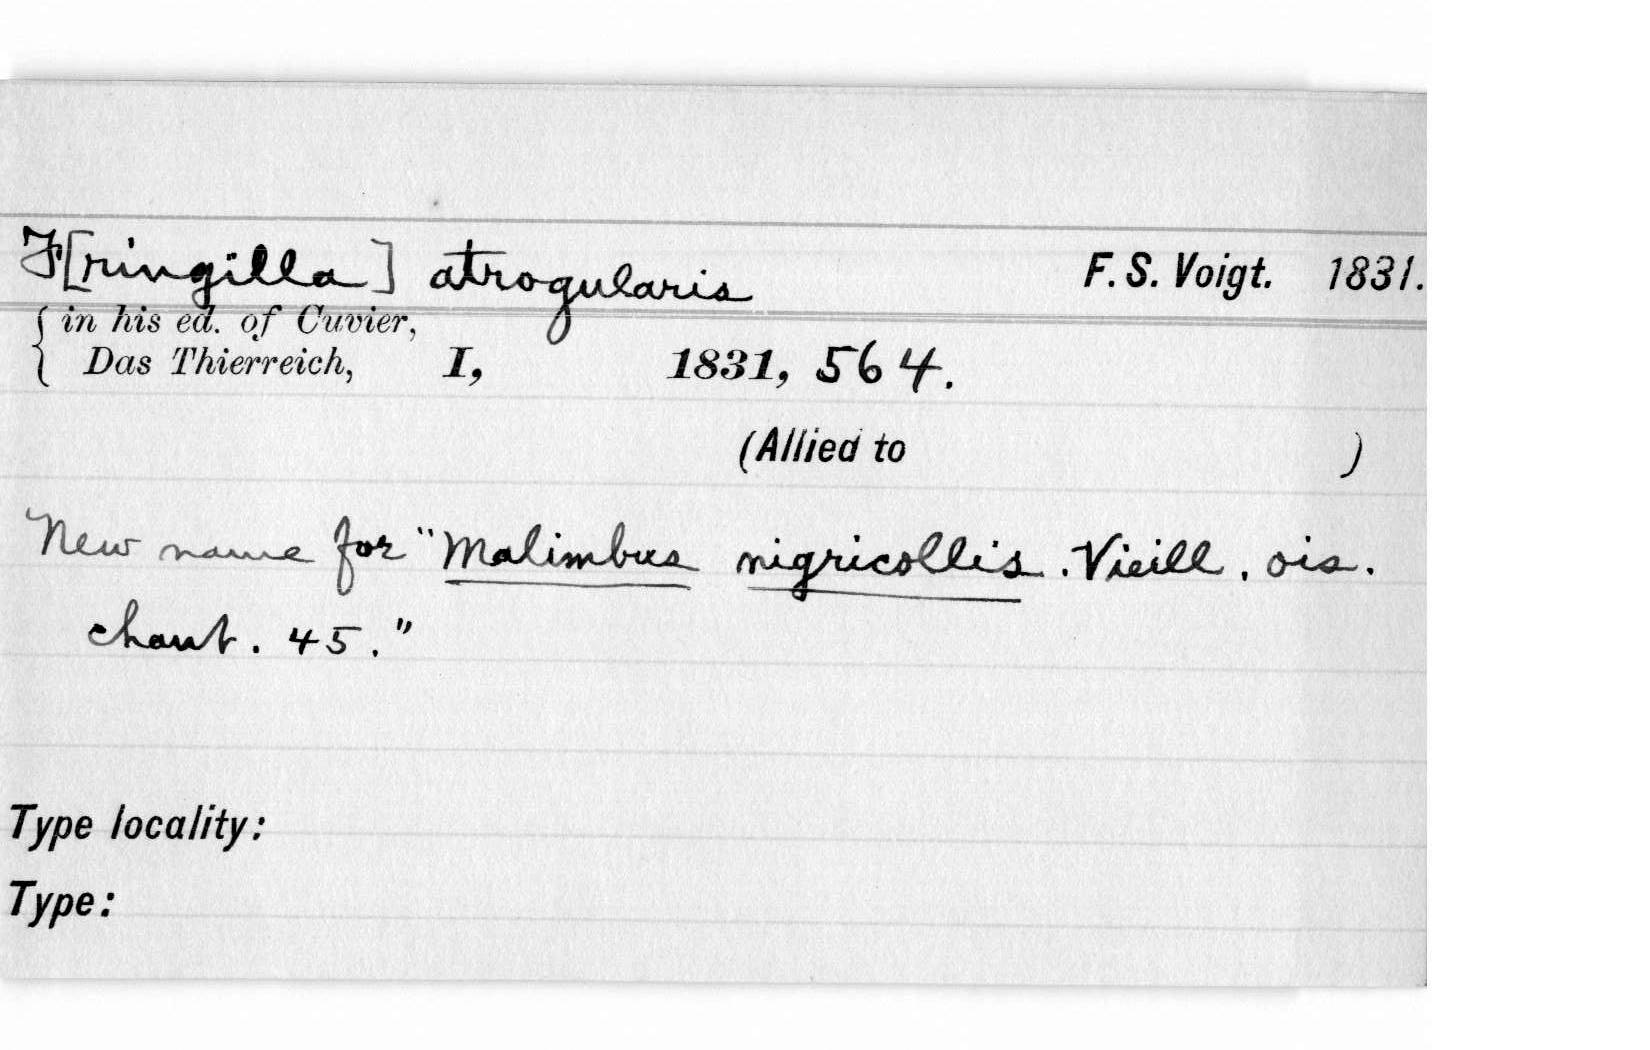 F[ringilla] atrogularis F. S. Voigt. 1831.
{ in his ed. of Cuvier,
Das Thierreich, I, 1831, 564.
(Allied to )
New name for "Malimbus nigricollis. Vieill. ois.
chant. 45."
Type locality:
Type: